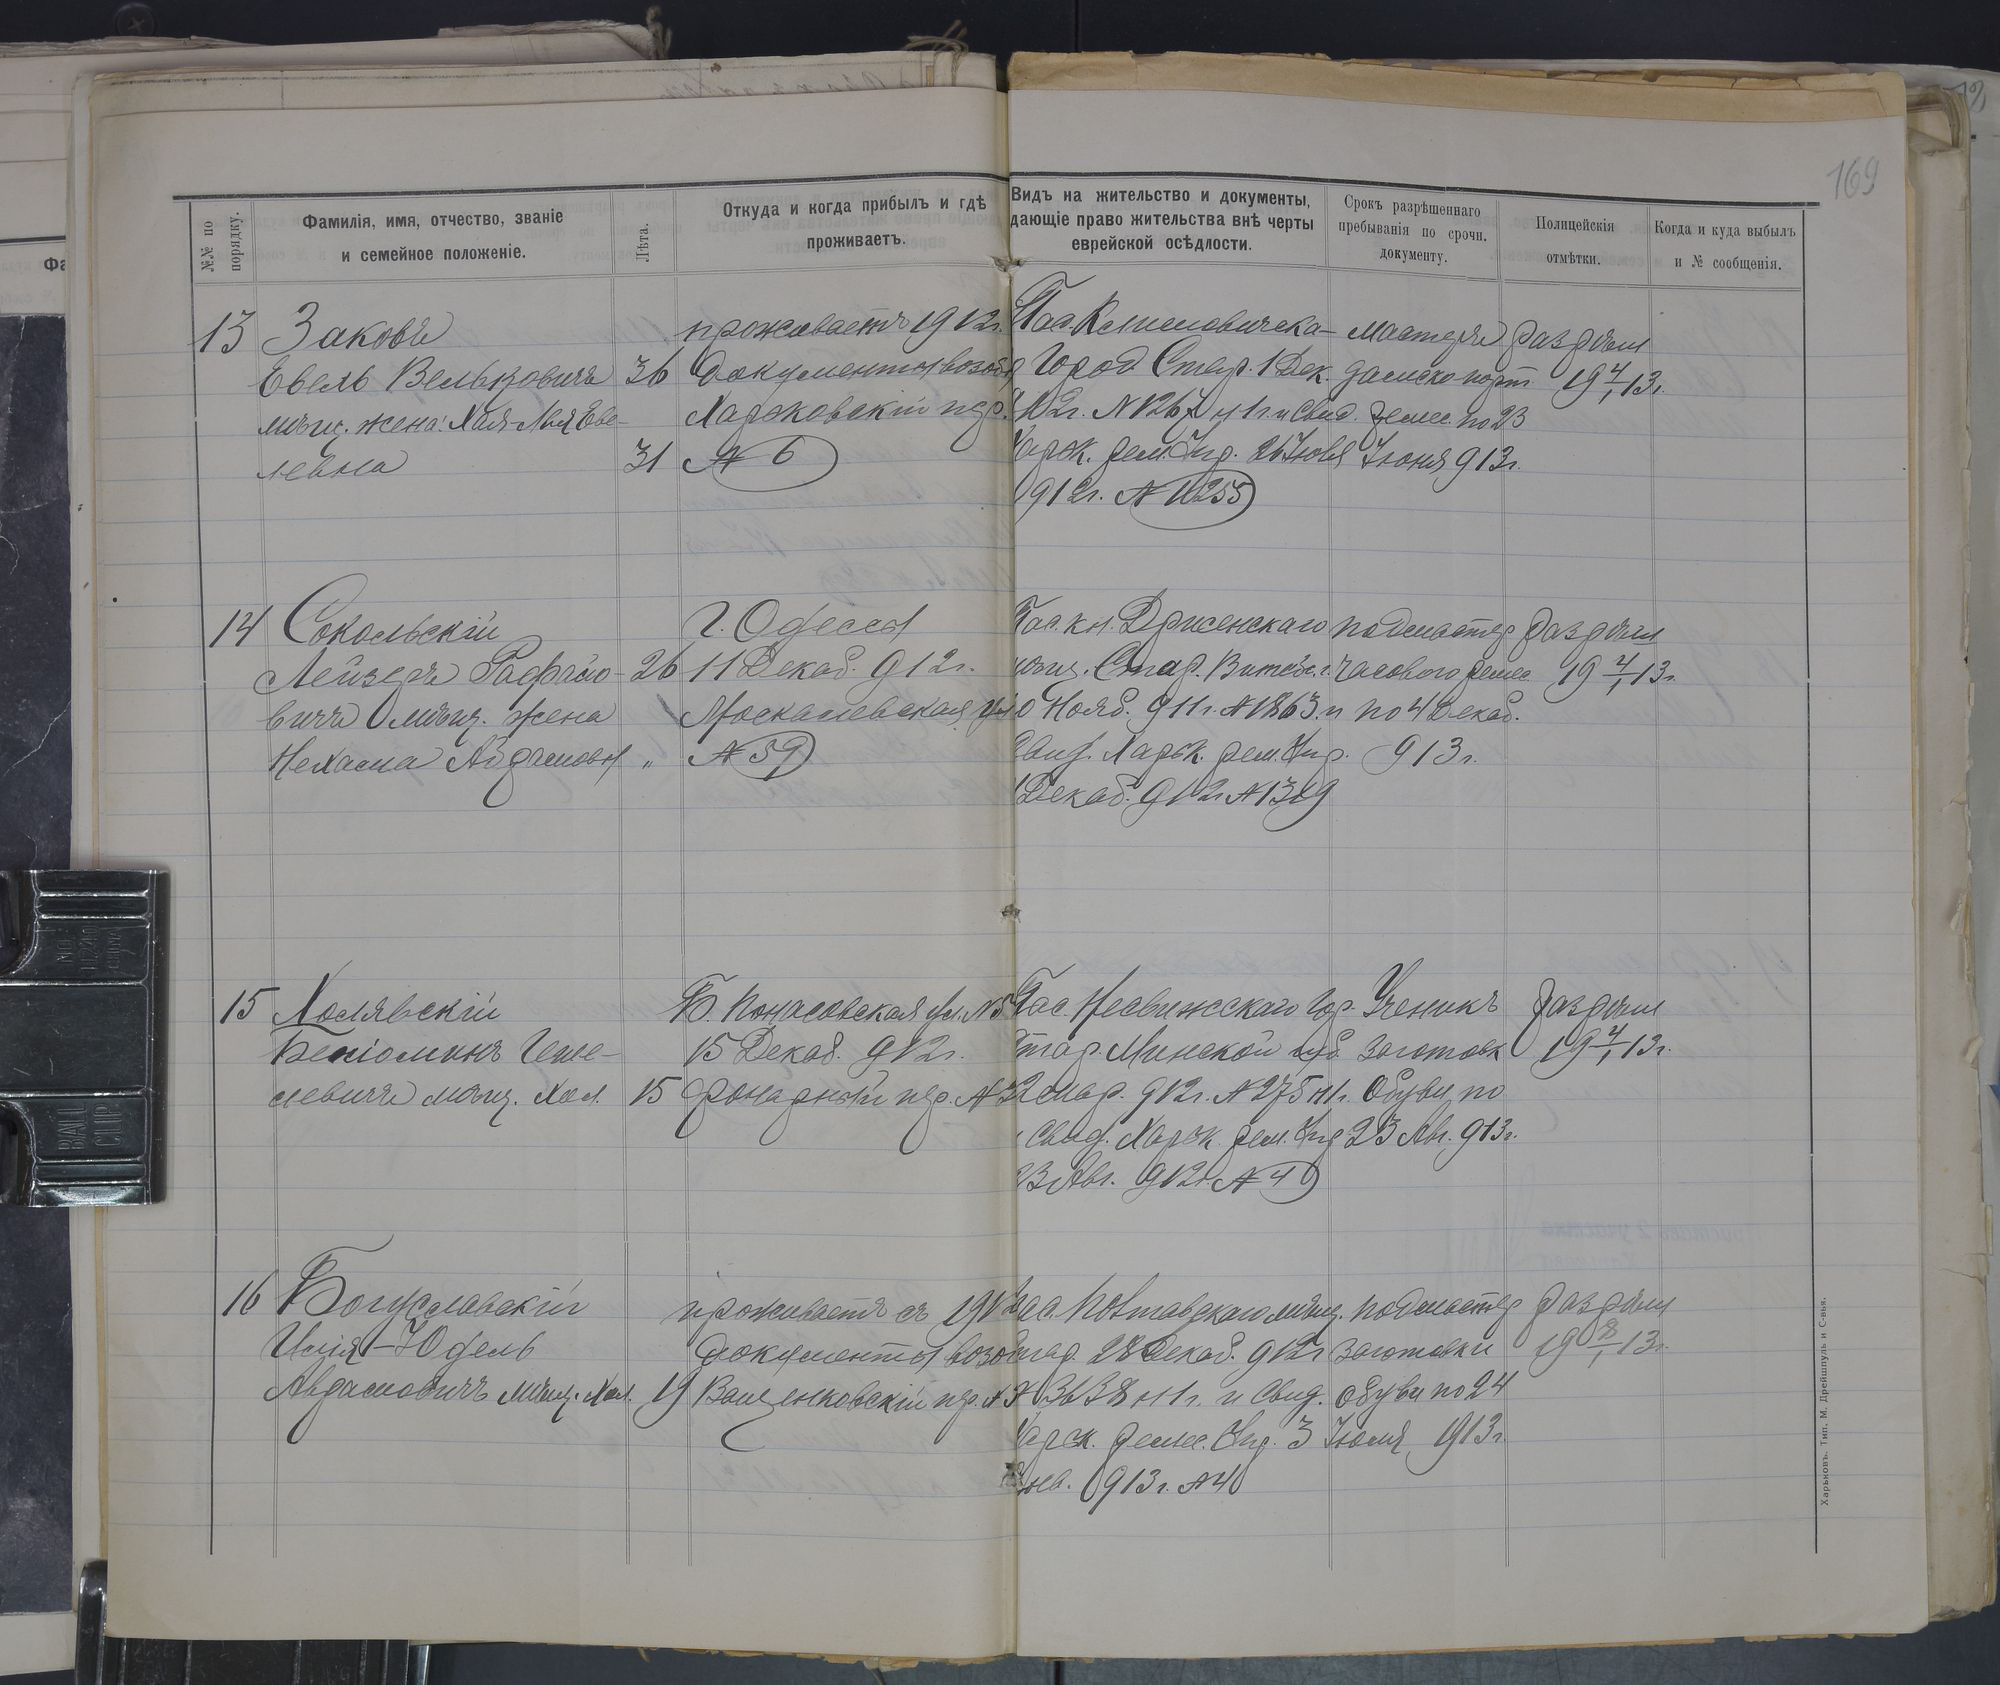 169
№№ по порядку.
Фамилія, имя, отчество, званіе
и семейное положеніе.
Лѣта.
Откуда и когда прибылъ и гдѣ
проживаетъ.
Видъ на жительство и документы,
дающіе право жительства внѣ черты
еврейской осѣдлости.
Срокъ разрѣшеннаго
пребыванія по срочн.
документу.
Полицейскія
отмѣтки.
Когда и куда выбылъ
и № сообщенія.
13
Заковъ
Евель Вельковичъ
мѣщ. жена: Хая-Лея Еве-
левна
36
31
проживаетъ 1912г.
документы возоб
Харьковскій пер.
№ 6
Пас. Климовичска-
го Город. Стар. 1 Дек.
912г. № 1267 н 1г. и Свид.
Харьк. рем. Упр. 26 Іюня
912г. № 10255
мастеръ
дамско порт
ремес. по 23
Іюня 913г.
раздѣлъ
19 4/1 13г.
14
Сокольскій
Лейзеръ Рафаило-
вичъ мѣщ. жена
Нехама Абрамовы
26
"
г. Одессы
11 Декаб. 912г.
Москалевская ул
№ 59
Пас. кн. Дрисенскаго
мѣщ. Стар. Витебс. г.
Нояб. 911г. № 1863 и
Свид. Харьк. рем. Упр.
Декаб. 912г. № 1319
подмастер
часового ремес.
по 4 Декаб.
913г.
раздѣлъ
19 4/1 13г.
15
Холявскій
Беніоминъ Геше-
левичъ мѣщ. Хол.
15
Б. Понасовская ул. № 5
15 Декаб. 912г.
Фонарный пер. №
Пас. Несвижскаго Гор.
Стар. Минской губ.
мар. 912г. № 275 н1г.
и Свид. Харьк. рем. Упр
23 Авг. 912г. № 4
Ученикъ
заготовк
Обуви по
23 Авг. 913г.
раздѣлъ
19 4/1 13г.
16
Богуславскій
Юдель
Абрамовичъ мѣщ. Хол.
19
проживаетъ съ 1912
документы возоб
Ващенковскій пер. №
Пас. Полтавскаго мѣщ.
стар. 28 Декаб. 912г
№ 3638 н 1г. и Свид.
Харьк. ремес. Упр. 3
Янв. 913г. № 40
подмастер
заготовки
обуви по 24
Іюля 1913г.
раздѣлъ
19 8/1 13г.
Харьковъ. Тип. М. Дрейшпуль и С-вья.
BALL CLIP